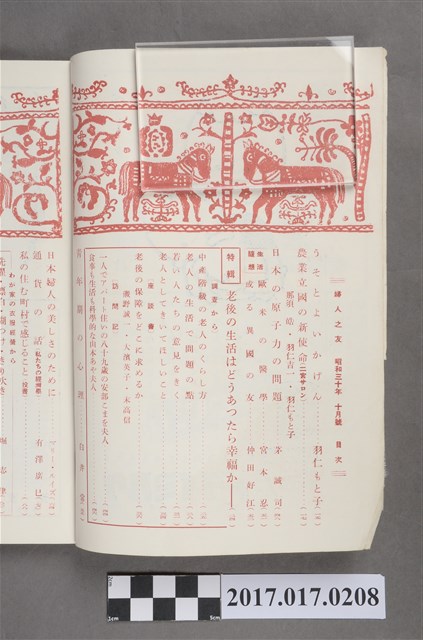 婦人之友 昭和三十年 十月號 目次
うそとよいかげん 羽仁もと子
農業立國の新使命 (二宮サロン)
那須皓・羽仁吉一・羽仁もと子
日本の原子力の問題 茅誠司
生活隨想
歐米の醫學 宮本忍
或る異國の友 仲田好江
特輯 老後の生活はどうあつたら幸福か
調査から
中産階級の老人のくらし方
老人の生活で問題の點
若い人たちの意見をきく
老人としてきいてほしいこと
座談會
老後の保障をどこに求めるか
磯野誠一・大濱英子・末高信
訪問記
一人でアパート住いの八十九歳の安部こまを夫人
食事も生活も科學的な山本あや夫人
年期の心理
日本婦人の美しさのために マリー・ハイズ
通貨の話 (私たちの經濟學) 有澤廣巳
私の住む町村で感じること 投書
わが家の衣服經營から
2017.017.0208